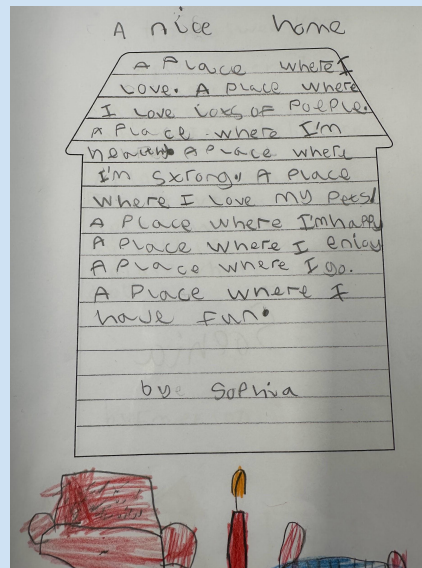 A nice home
A Place where I
Love. A Place where
I Love Lots of Poeple.
A Place where I'm
healthy A Place where
I'm strong. A Place
where I Love my Pets!
A Place where I'm happy
A Place where I enjoy
A Place where I go.
A Place where I
have fun.
by Sophia